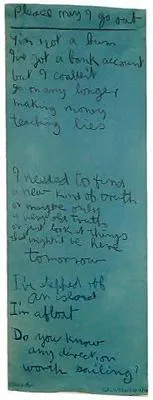 Please may I go out
I'm not a bum
I've got a bank account
but I couldn't
go on any longer
making money
teaching lies
I needed to find
a new kind of truth
or maybe only
a very old truth
or just look at things
that mightn't be here
tomorrow
I've stepped off
an island
I'm afloat
Do you know
any direction
worth sailing?